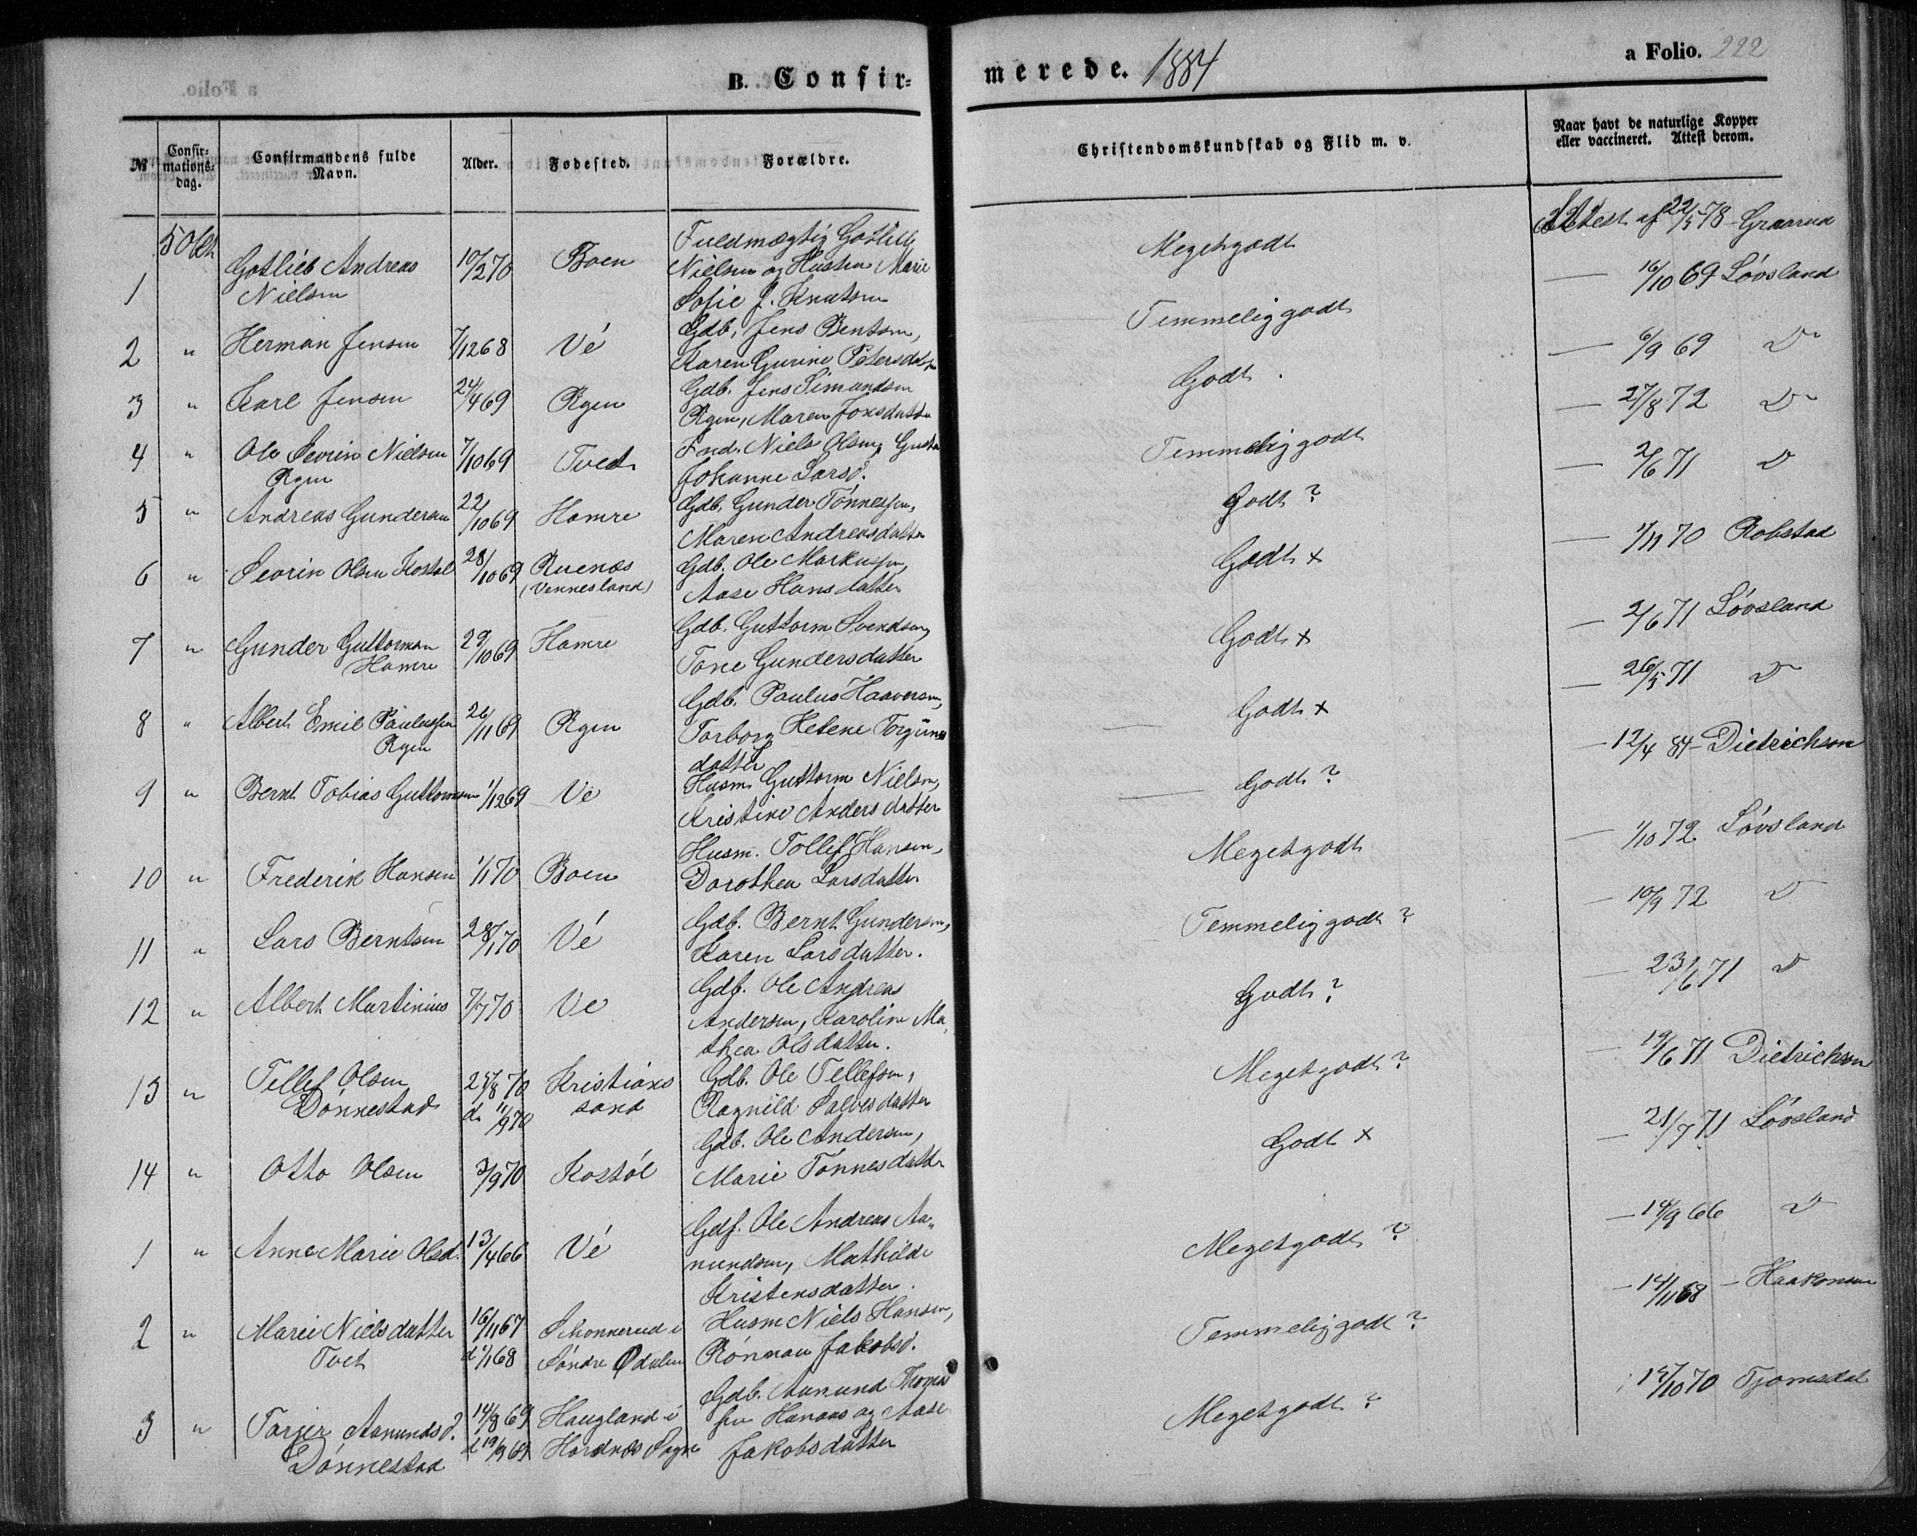 B. Confirmerede. 1884
a Folio. 222
№
Confirmations-dag.
Confirmandens fulde Navn.
Alder.
Fødested.
Forældre.
Christendomskundskab og Flid m. v.
Naar havt de naturlige Kopper eller vaccineret. Attest derom.
5 Okt
1 Gotlieb Andreas Nielsen 10/2 70 Boen Fuldmægtig Gotlieb Nielsen og Hustru Marie Sofie J. Knutsen Megetgodt Attest af 22/5 78 Graarud
2 " Herman Jensen 7/12 68 Vé Gdb. Jens Bentsen, Karen Gurine Petersdatter Temmelig godt — 16/10 69 Løvsland
3 " Karl Jensen 24/4 69 Rgen Gdb. Jens Simundsen Rgen, Maren Jonsdatter Godt — 6/9 69 D
4 " Ole Severin Nielsen Rgen 7/10 69 Tvedt Niels Olsen, Johanne Larsd. Temmelig godt — 27/8 72 D
5 " Andreas Gundersen 22/10 69 Hamre Gdb. Gunder Tønnessen, Maren Andreasdatter Godt ? — 2/6 71 D
6 " Severin Olsen Kostøl 28/10 69 Ruenæs (Vennesland) Gdb. Ole Markussen, Aase Hansdatter Godt x — 1/11 70 Robstad
7 " Gunder Guttormsen Hamre 29/10 69 Hamre Gdb. Guttorm Svendsen, Tone Gundersdatter Godt x — 2/6 71 Løvsland
8 " Albert Emil Paulussen Rgen 26/11 69 Rgen Gdb. Paulus Haaversen, Torborg Helene datter Godt x — 26/5 71 D
9 " Bernt Tobias Guttormsen 1/12 69 Vé Husm. Guttorm Nielsen, Kristine Andersdatter Godt ? — 12/4 84 – Dietrichson
10 " Frederik Hansen 1/1 70 Boen Husm. Tollef Hansen, Dorothea Larsdatter Megetgodt — 1/10 72 Løvsland
11 " Lars Berntsen 28/1 70 Vé Gdb. Bernt Gundersen, Karen Larsdatter. Temmelig godt ? — 10/9 72 D
12 " Albert Martinius 7/7 70 Ve Gdb. Ole Andreas Andersen, Karoline Mathea Olsdatter. Godt ? — 23/6 71 D
13 " Tellef Olsen Dønnestad 25/8 70 d. 11/9 70 Kristianssand Gdb. Ole Tellefsen, Ragnild Salvesdatter Megetgodt ? — 19/6 71 Dietrichson
14 " Otto Olsen 3/9 70 Kostøl Gdb. Ole Andersen, Marie Tønnesdatter Godt x — 21/7 71 Løvsland
1 " Anne Marie Olsd. 13/4 66 Vé Gdf. Ole Andreas Aanundsen, Mathilde Kristensdatter. Megetgodt ? — 14/9 66 D
2 " Marie Nielsdatter Tvet 16/11 67 d. 1/1 68 Schonnerud i Søndre Ødalen Husm Niels Hansen, Rønnau Jakobsd. Temmelig godt ? — 14/11 68 – Haakonsen
3 " Torjer Aanundsd. Dønnestad 14/8 69 d. 19/9 69 Haugland i Hordnæs Sogn Gdb. Aanund og Aase Jakobsdatter Megetgodt ? 17/10 70 Tjomsdal